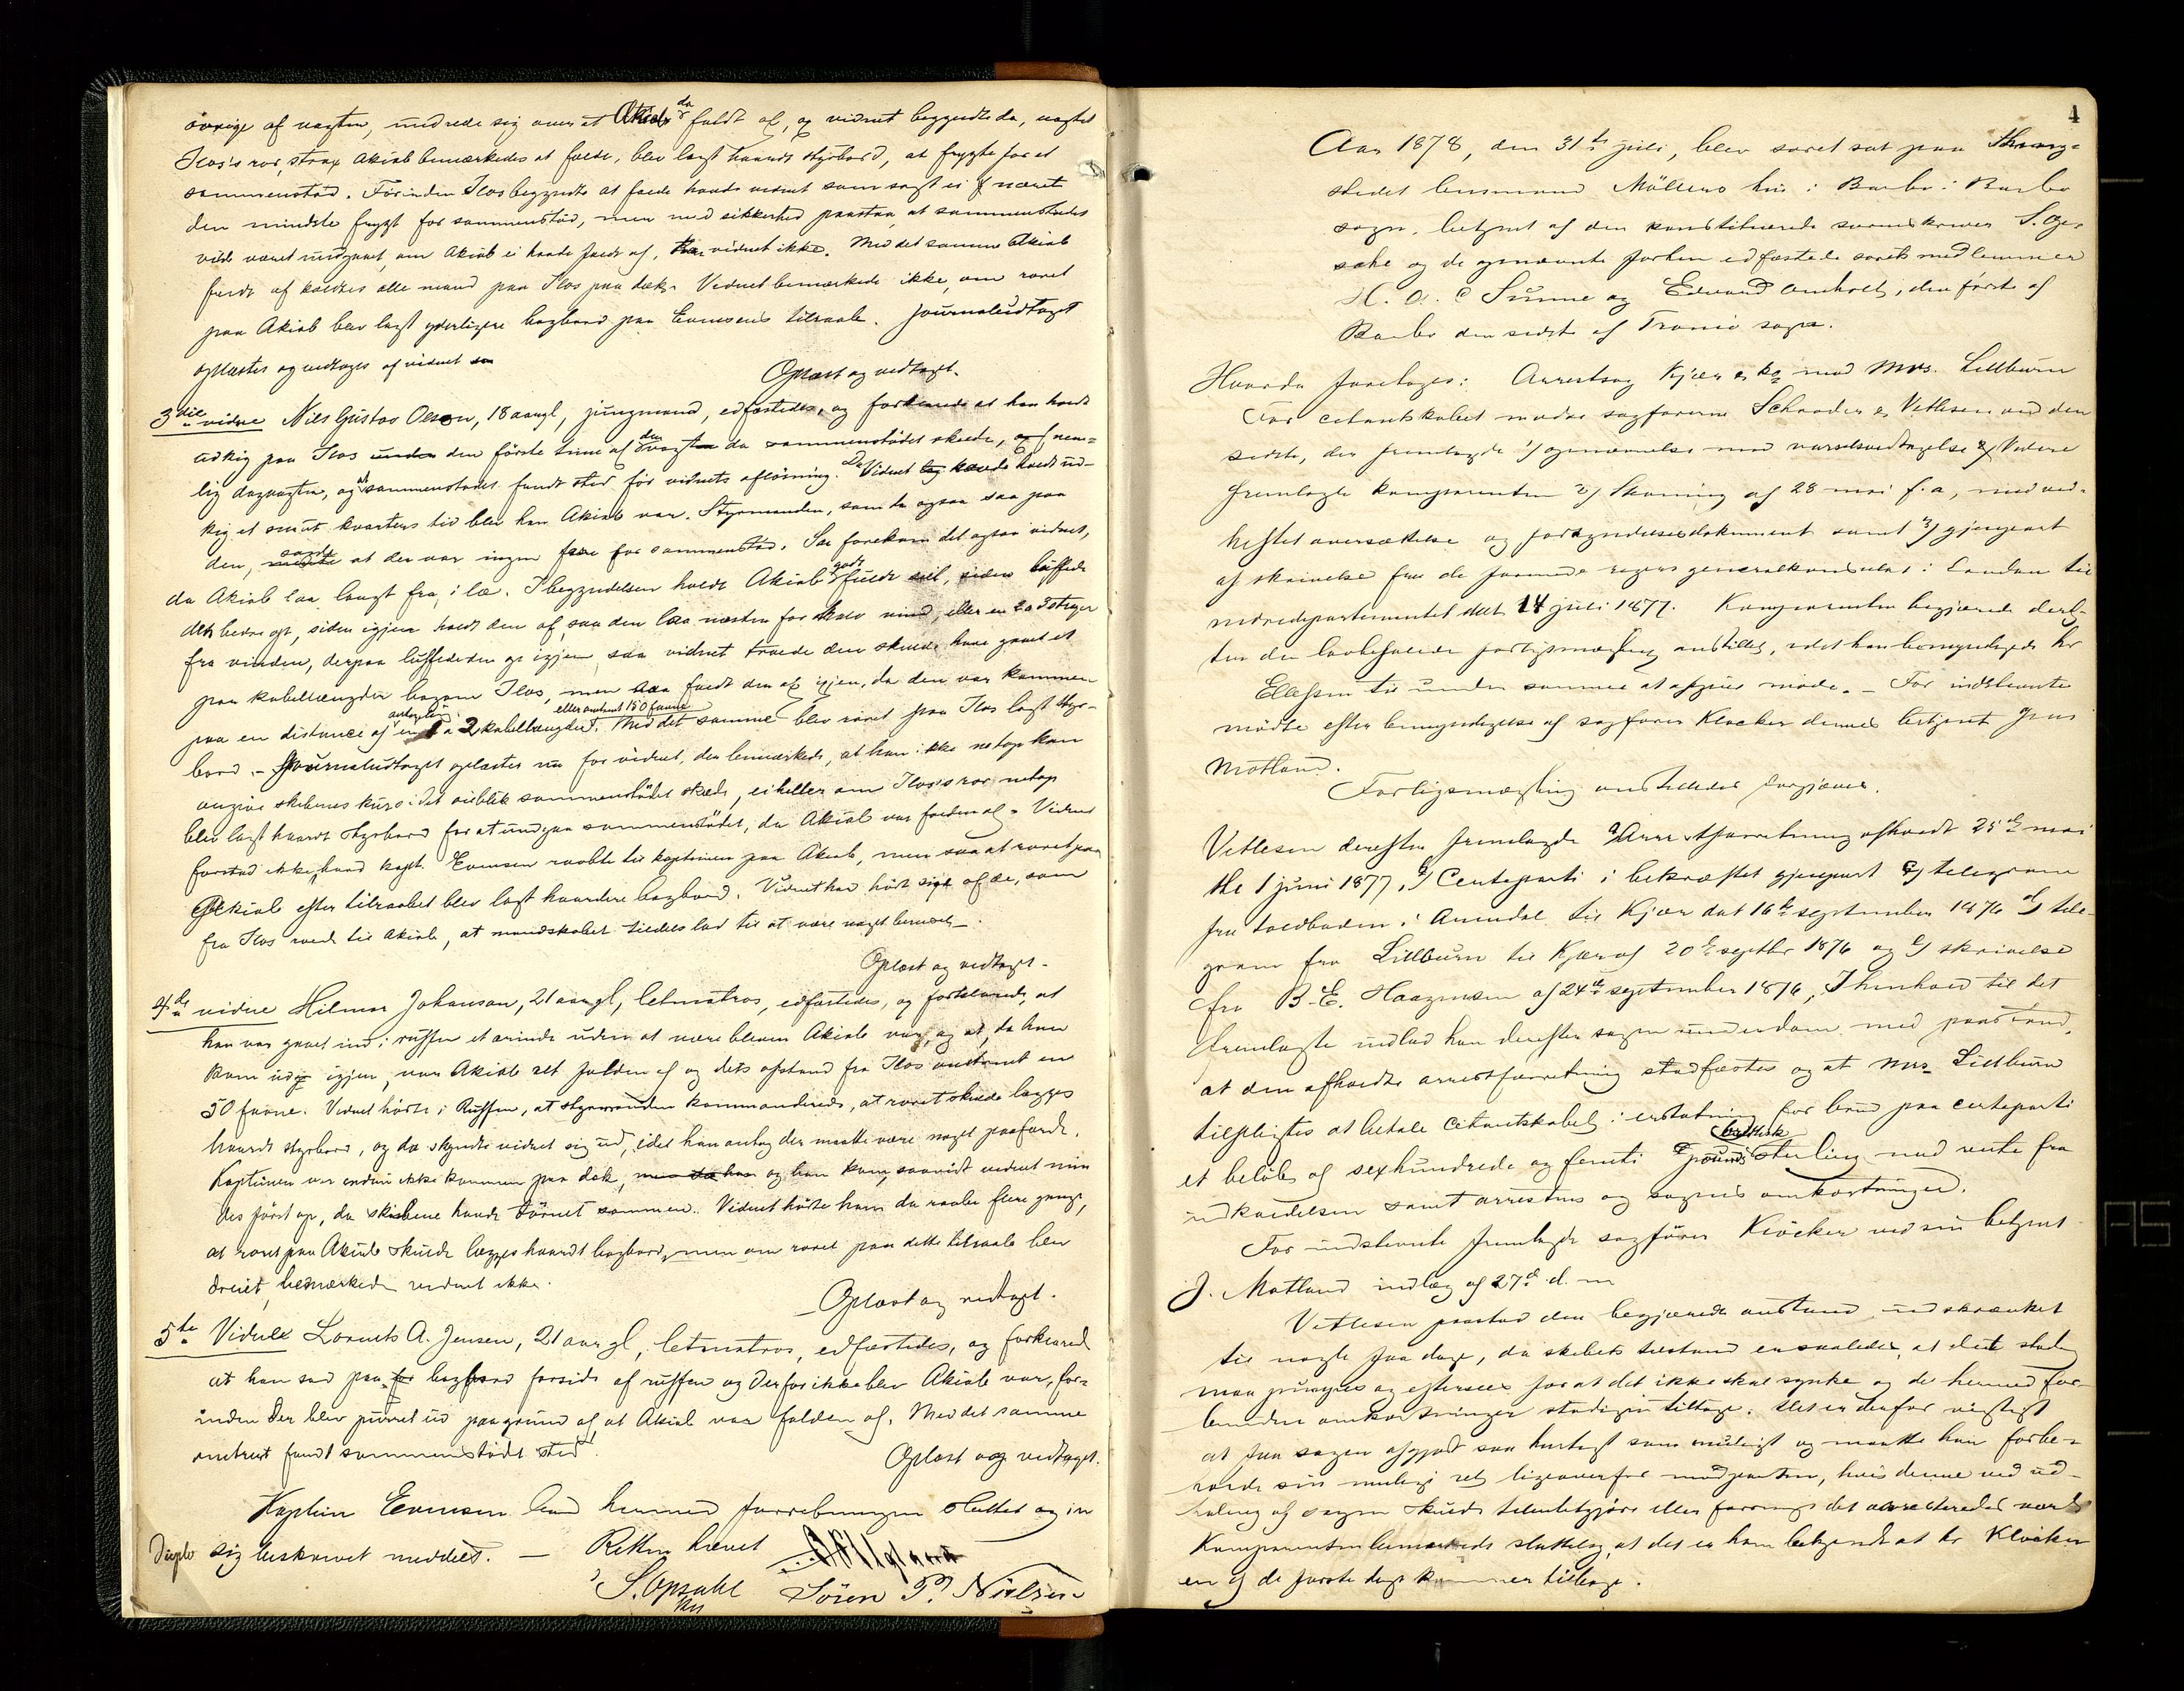 övrige af vagten, undrede sig over at Akiab da faldt af, og vidnet begyndte da, uagtet
Ilos's ror, strax Akiab bemærkedes at falde, blev lagt haardt styrbord, at frygte for et
sammenstød. Förinden Ilos begyndte at falde havde vidnet som sagt ei næret
den mindste frygt for sammenstød, men med sikkerhed paastaa, at sammenstødet
vilde været undgaaet, om Akiab ei havde faldt af, tør vidnet ikke. Med det samme Akiab
faldt af kaldtes alle mand paa Ilos paa dæk. Vidnet bemærkede ikke, om roret
paa Akiab blev lagt yderligere bagbord paa Evensens tilraab. Journaludtoget
oplæstes og vedtoges af vidnet
Oplæst og vedtaget.
3die vidne Nils Gustav Olsen, 18 aar gl, jungmand, edfæstedes, og forklarede at han havde
udkig paa Ilos den förste time af den vagt da sammenstödet skede, nem-
lig dagvagten, og at sammenstødet fandt sted för vidnets aflösning. Da Vidnet havde holdt ud-
kig et snaut kvarters tid blev han Akiab var. Styrmanden, som da ogsaa saa paa
den, sagde at der var ingen fare for sammenstød. Saa forekom det ogsaa vidnet,
da Akiab laa langt fra, i læ. I begyndelsen holdt Akiab godt fuldt, siden luffede
den bedre op, siden igjen holdt den af, saa den laa næsten for halv vind, eller en 2 a 3 streger
fra vinden, derpaa luffede den op igjen, saa vidnet troede den skulde have gaaet et
par kabellængder bagom Ilos, men saa faldt den af igjen, da den var kommen
paa en distance af antagelig en 1 a 2 kabellængder, eller omtrent 150 favne. Med det samme blev roret paa Ilos lagt styr-
bord. – Journaludtoget oplæstes nu for vidnet, der bemærkede, at han ikke netop kan
angive skibenes kurs i det øieblik sammenstødet skede, ei heller om Ilos's ror netop
blev lagt haardt styrbord for at undgaa sammenstødet, da Akiab var falden af. Vidnet
forstod ikke, hvad kapt. Evensen raabte til kaptainen paa Akiab, men saa at roret paa
Akiab efter tilraabet blev lagt haardere bagbord. Vidnet har hört sige af de, som
fra Ilos roede til Akiab, at mandskabet tildels lod til at være noget beruset.
Oplæst og vedtaget.
4de vidne Hilmar Johansen, 21 aar gl, letmatros, edfæstedes, og forklarede, at
han var gaaet ind i ruffen et ærinde uden at være bleven Akiab var, og at, da han
kom ud igjen, var Akiab alt falden af og dets afstand fra Ilos omtrent en
50 favne. Vidnet hørte i Ruffen, at styrmanden kommanderede, at roret skulde lægges
haardt styrbord, og da skyndte vidnet sig ud, idet han antog der maatte være noget paafærde.
Kaptainen var endnu ikke kommen paa dæk, og han kom, saavidt vidnet min-
des först op, da skibene havde törnet sammen. Vidnet hörte ham da raabe flere gange,
at roret paa Akiab skulde lægges haardt bagbord, men om roret paa dette tilraab blev
dreiet, bemærkede vidnet ikke.
Oplæst og vedtaget.
5te Vidne Laurits A. Jensen, 21 aar gl, letmatros, edfæstedes, og forklared
at han sad paa bagbord forside af ruffen og derfor ikke blev Akiab var, for-
inden der blev purret ud paa grund af, at Akiab var falden af. Med det samme
omtrent fandt sammenstødet sted.
Oplæst og vedtaget.
Kaptein Evensen bad hermed forretningen sluttet og in
duplo sig beskrevet meddelt. — Retten hævet
S. Opsahl Sören P. Nielsen
kst
4
Aar 1878, den 31te juli, blev søret sat paa thing-
stedet lensmand Möllers hus i Barbo i Barbo
sogn, betjent af den konstituerede sorenskriver S. Op-
sahl og de opnævnte forhen edfæstede sørets medlemmer
H. A. C Sünne og Edvard Amholt, den første af
Barbo den sidste af Tromö sogn.
Hvorda foretoges: Arrestsag Kjær & ko mod Mrs. Lillburn
For citantskabet mødte sagførerne Schroeder & Vetlesen ved den
sidste, der fremlagde 1/ opnævnelse med varselsvedtagelse & Videre
fremlagte komparenten 2/ Stævning af 28 mai f.a., med ved-
heftet oversættelse og forkyndelsesdokument samt 3/ gjenpart
af skrivelse fra de forenede rigers generalkonsulat i London til
indredepartementet dat 14 juli 1877. Komparenten begjærede deref-
ter den lovbefalede forligsmægling anstillet, idet han bemyndigede hr
Ellefsen til under samme at afgive møde. – For indstevnte
mødte efter bemyndigelse af sagfører Klöcker dennes betjent Jens
Motland.
Forligsmægling anstilledes forgjæves.
Vetlesen derefter fremlagde a/ Arrestforretning afholdt 25de mai
til 1 juni 1877, b/ Certeparti i bekræftet gjenpart c/ telegram
fra toldboden i Arendal til Kjær dat 16de september 1876 d/ tele-
gram fra Lillburn til Kjær af 20de septbr 1876 og e/ skrivelse
fra B. E. Haagensen af 24de september 1876, I henhold til det
fremlagte indlod han derefter sagen under dom med paastand,
at den afholdte arrestforretning stadfæstes og at Mrs. Lillburn
tilpligtes at betale citantskabet i erstatning for brud paa certeparti
et beløb af sexhundrede og femti brittisk pounds sterling med rente fra
indkaldelsen samt arrestens og sagens omkostninger.
For indstevnte fremlagde sagfører Klöcker ved sin betjent
J. Motland indlæg af 27de d. m
Vetlesen paastod den begjærede anstand indskrænket
til nogle faa dage, da skibets tilstand er saaledes, at dette stadig
maa pumpes og eftersees for at det ikke skal synke og de hermed for-
bundne omkostninger stadigen tiltage. Det er derfor vigtigt
at faa sagen afgjort saa hurtigt som muligt og maatte han forbe-
holde sin mulige ret ligeoverfor modparten, hvis denne ved ud-
haling af sagen skulde tilintetgjøre eller forringe det arresteredes værd
Komparenten bemærkede sluttelig, at det er ham bekjendt at hr Klöcker
en af de første dage kommer tilbage.